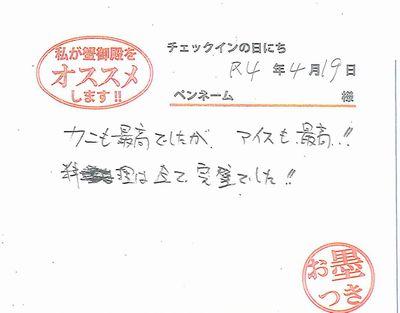 私が蟹御殿を
オススメ
します!!
チェックインの日にち
R4年4月19日
ペンネーム 様
カニも最高でしたが、アイスも最高!!
料理は全て完璧でした!!
お墨
つき